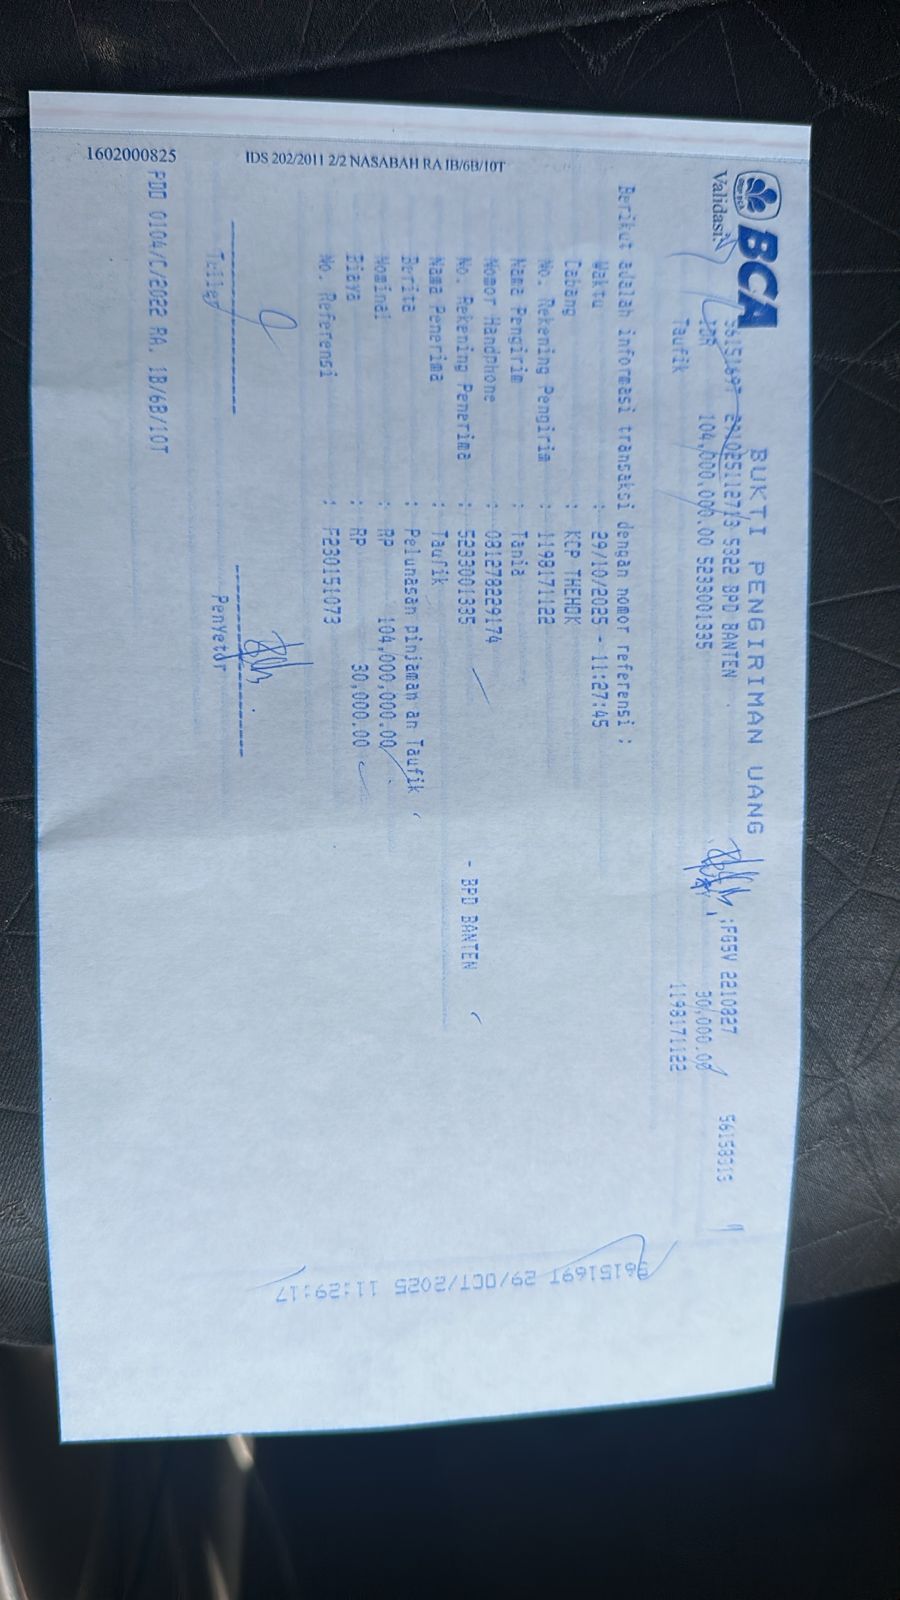 BCA
BUKTI PENGIRIMAN UANG
Validasi:
5615169T 291025112713 5322 BPD BANTEN :FGSV 2210827 56158313
IDR 104,000,000.00 5233001335 30,000.00
Taufik 1198171122
Berikut adalah informasi transaksi dengan nomor referensi :
Waktu : 29/10/2025 - 11:27:45
Cabang : KCP THEHOK
No. Rekening Pengirim : 1198171122
Nama Pengirim : Tania
Nomor Handphone : 081278229174
No. Rekening Penerima : 5233001335 - BPD BANTEN
Nama Penerima : Taufik
Berita : Pelunasan pinjaman an Taufik
Nominal : RP 104,000,000.00
Biaya : RP 30,000.00
No. Referensi : F230151073
Teller Penyetor
FDD 0104/C/2022 RA. 1B/6B/10T
1602000825 IDS 202/2011 2/2 NASABAH RA IB/6B/10T
5615169T 29/OCT/2025 11:29:17